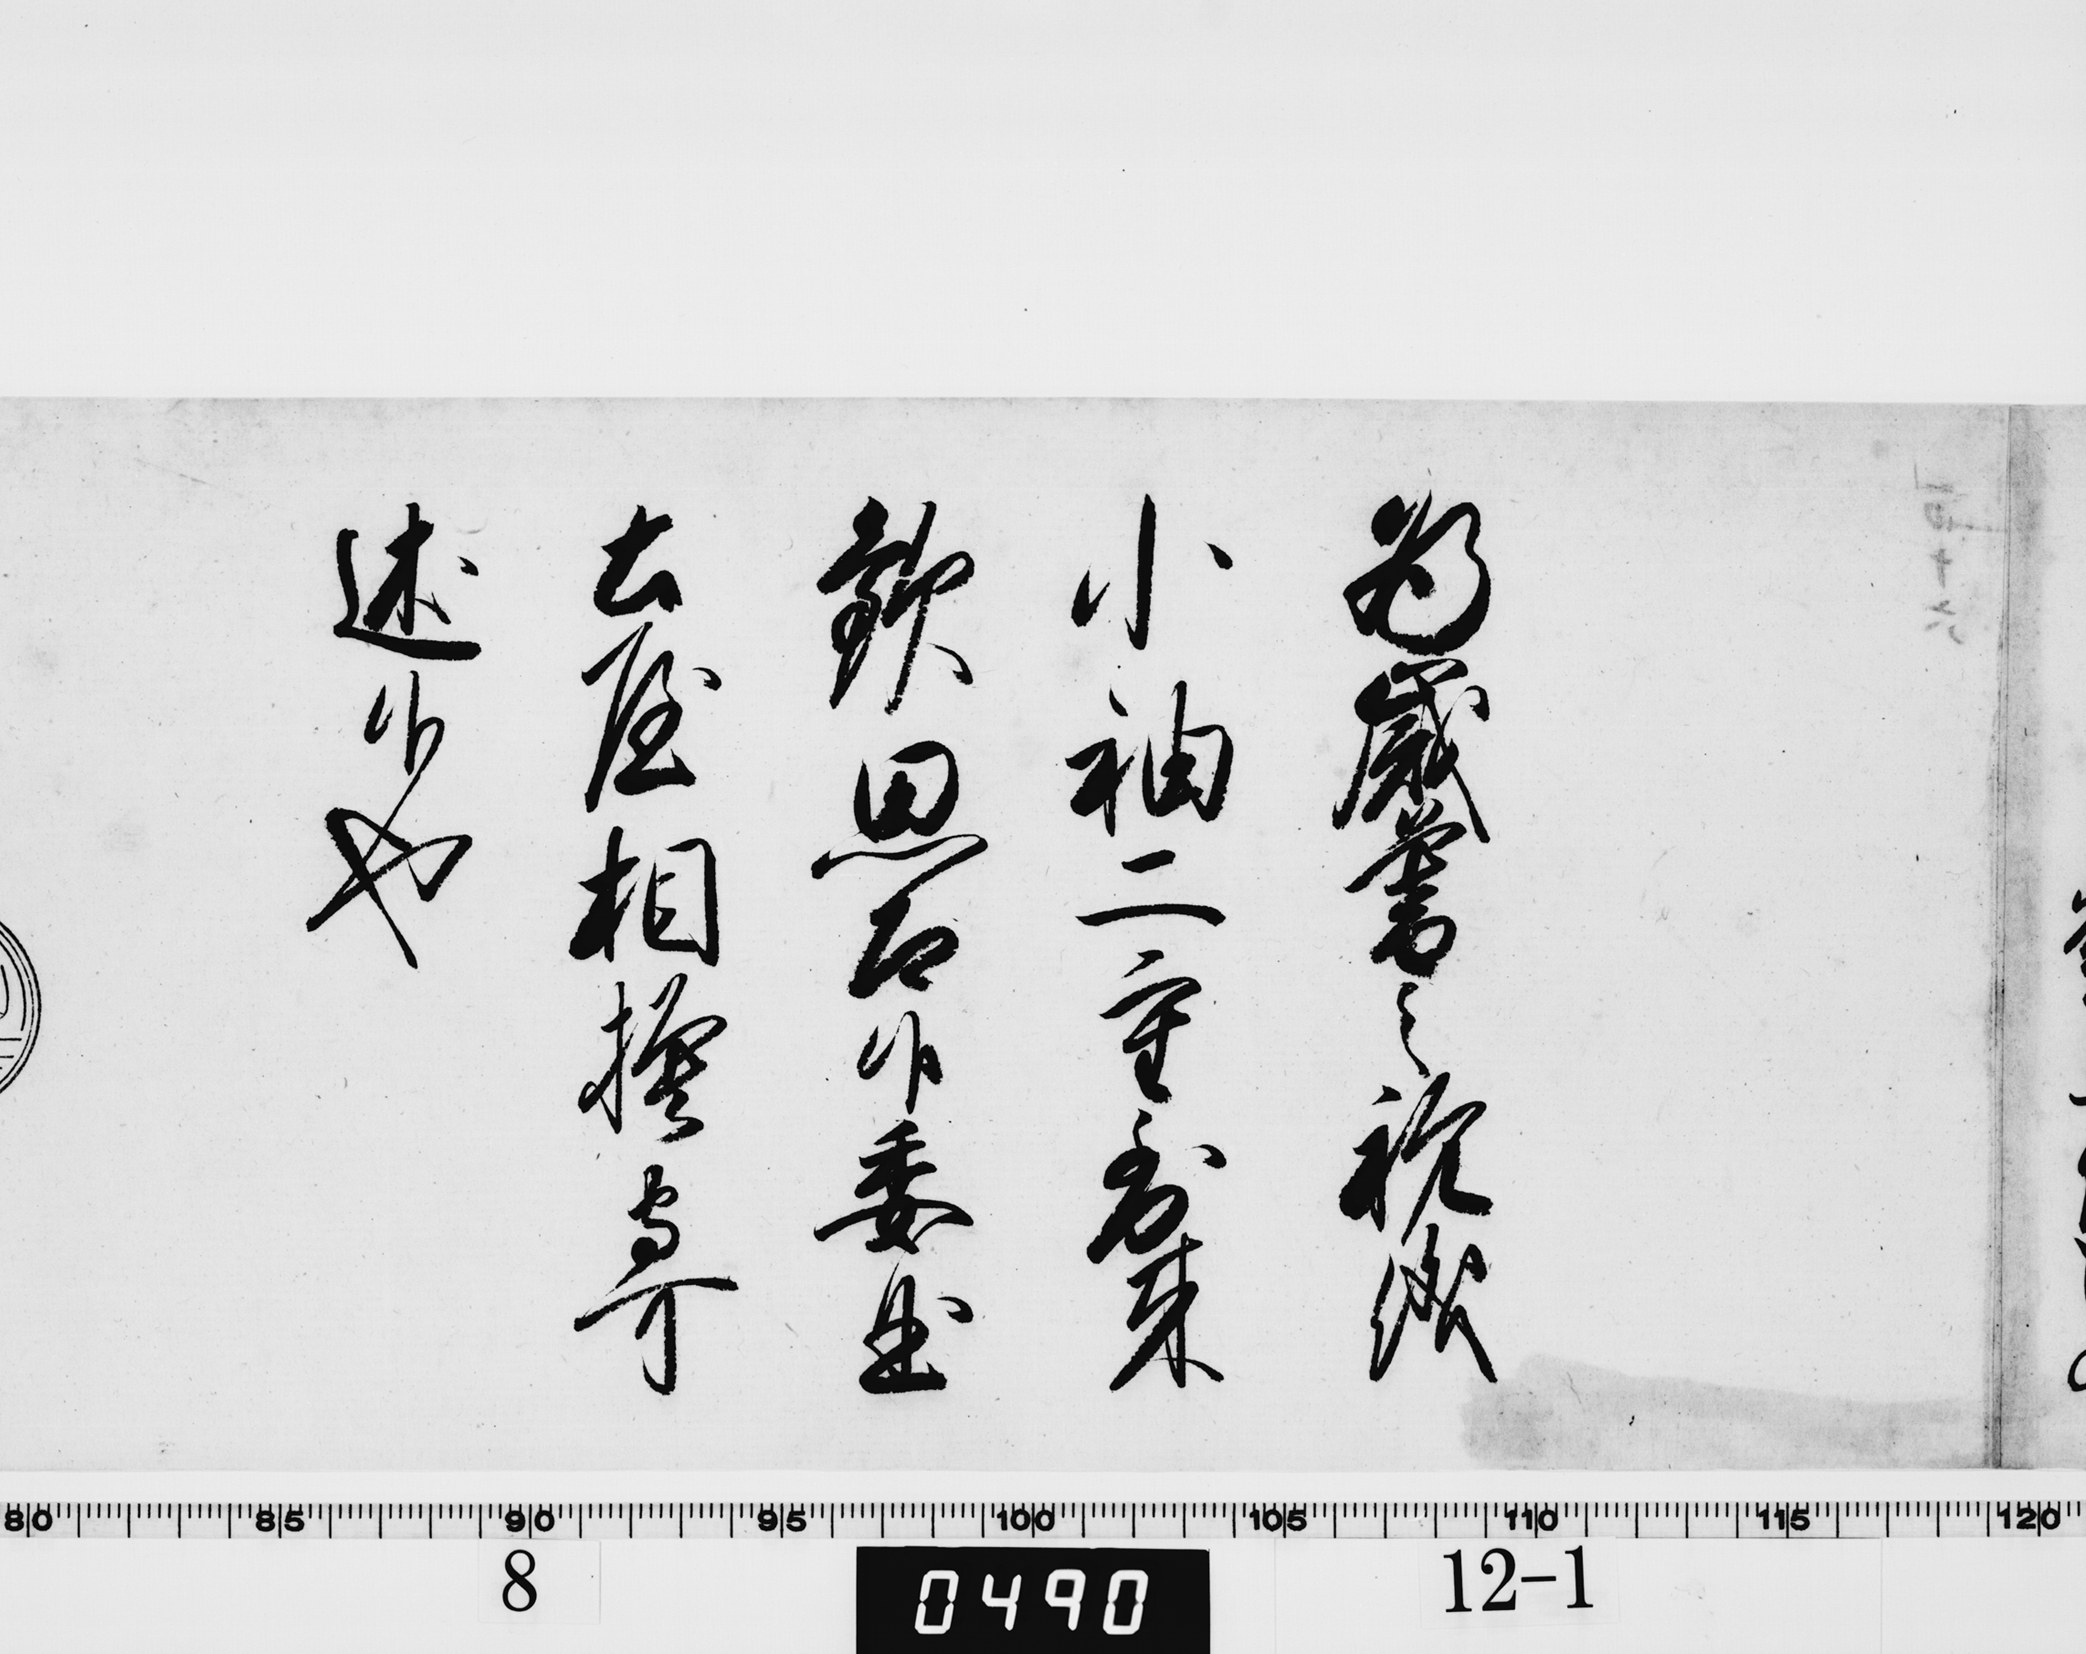 為歳暮之祝儀
小袖二重到来
歓思召候委曲
土屋相摸守可
述候也
80 85 90 95 100 105 110 115 120
8 0490 12-1